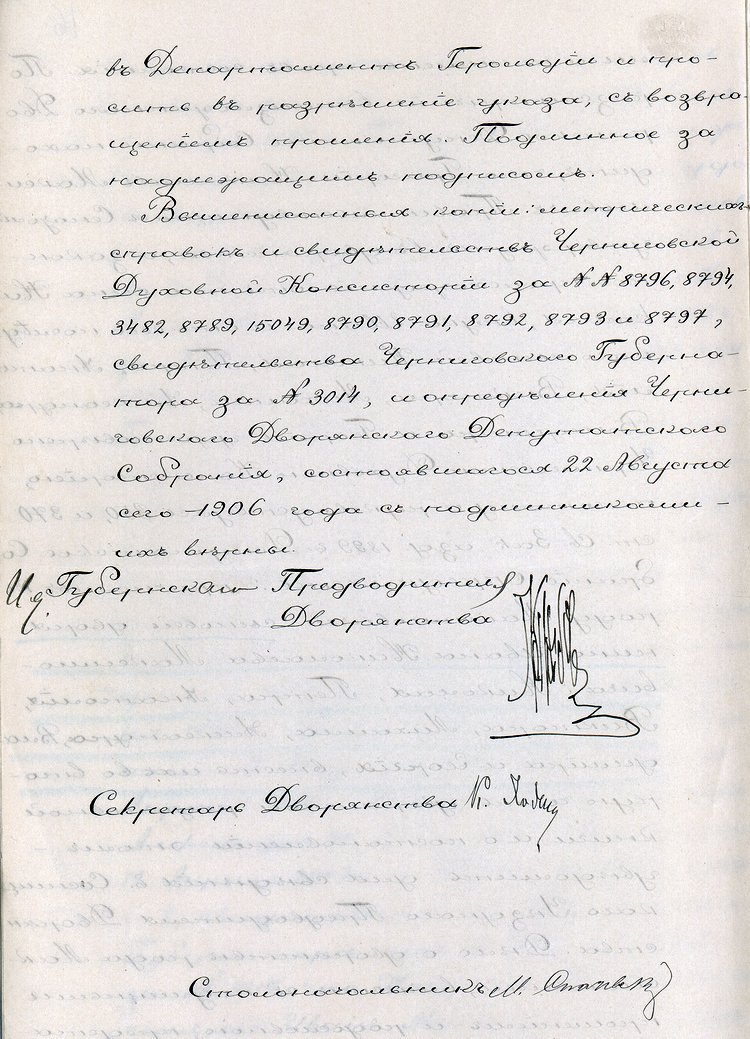 въ Департаментъ Герольдіи и про-
ситъ въ разрѣшеніе указа, съ возвра-
щеніемъ прошенія. Подлинное за
надлежащимъ подписомъ.
Вышеписанныя копіи: метрическихъ
справокъ и свидѣтельствъ Черниговской
Духовной Консисторіи за NN 8796, 8794,
3482, 8789, 15049, 8790, 8791, 8792, 8793 и 8797,
свидѣтельства Черниговскаго Губерна-
тора за N 3014, и опредѣленія Черни-
говскаго Дворянскаго Депутатскаго
Собранія, состоявшагося 22 Августа
сего 1906 года съ подлинниками
ихъ вѣрны.
И д. Губернскаго Предводителя
Дворянства
Секретарь Дворянства К.
Столоначальникъ М.